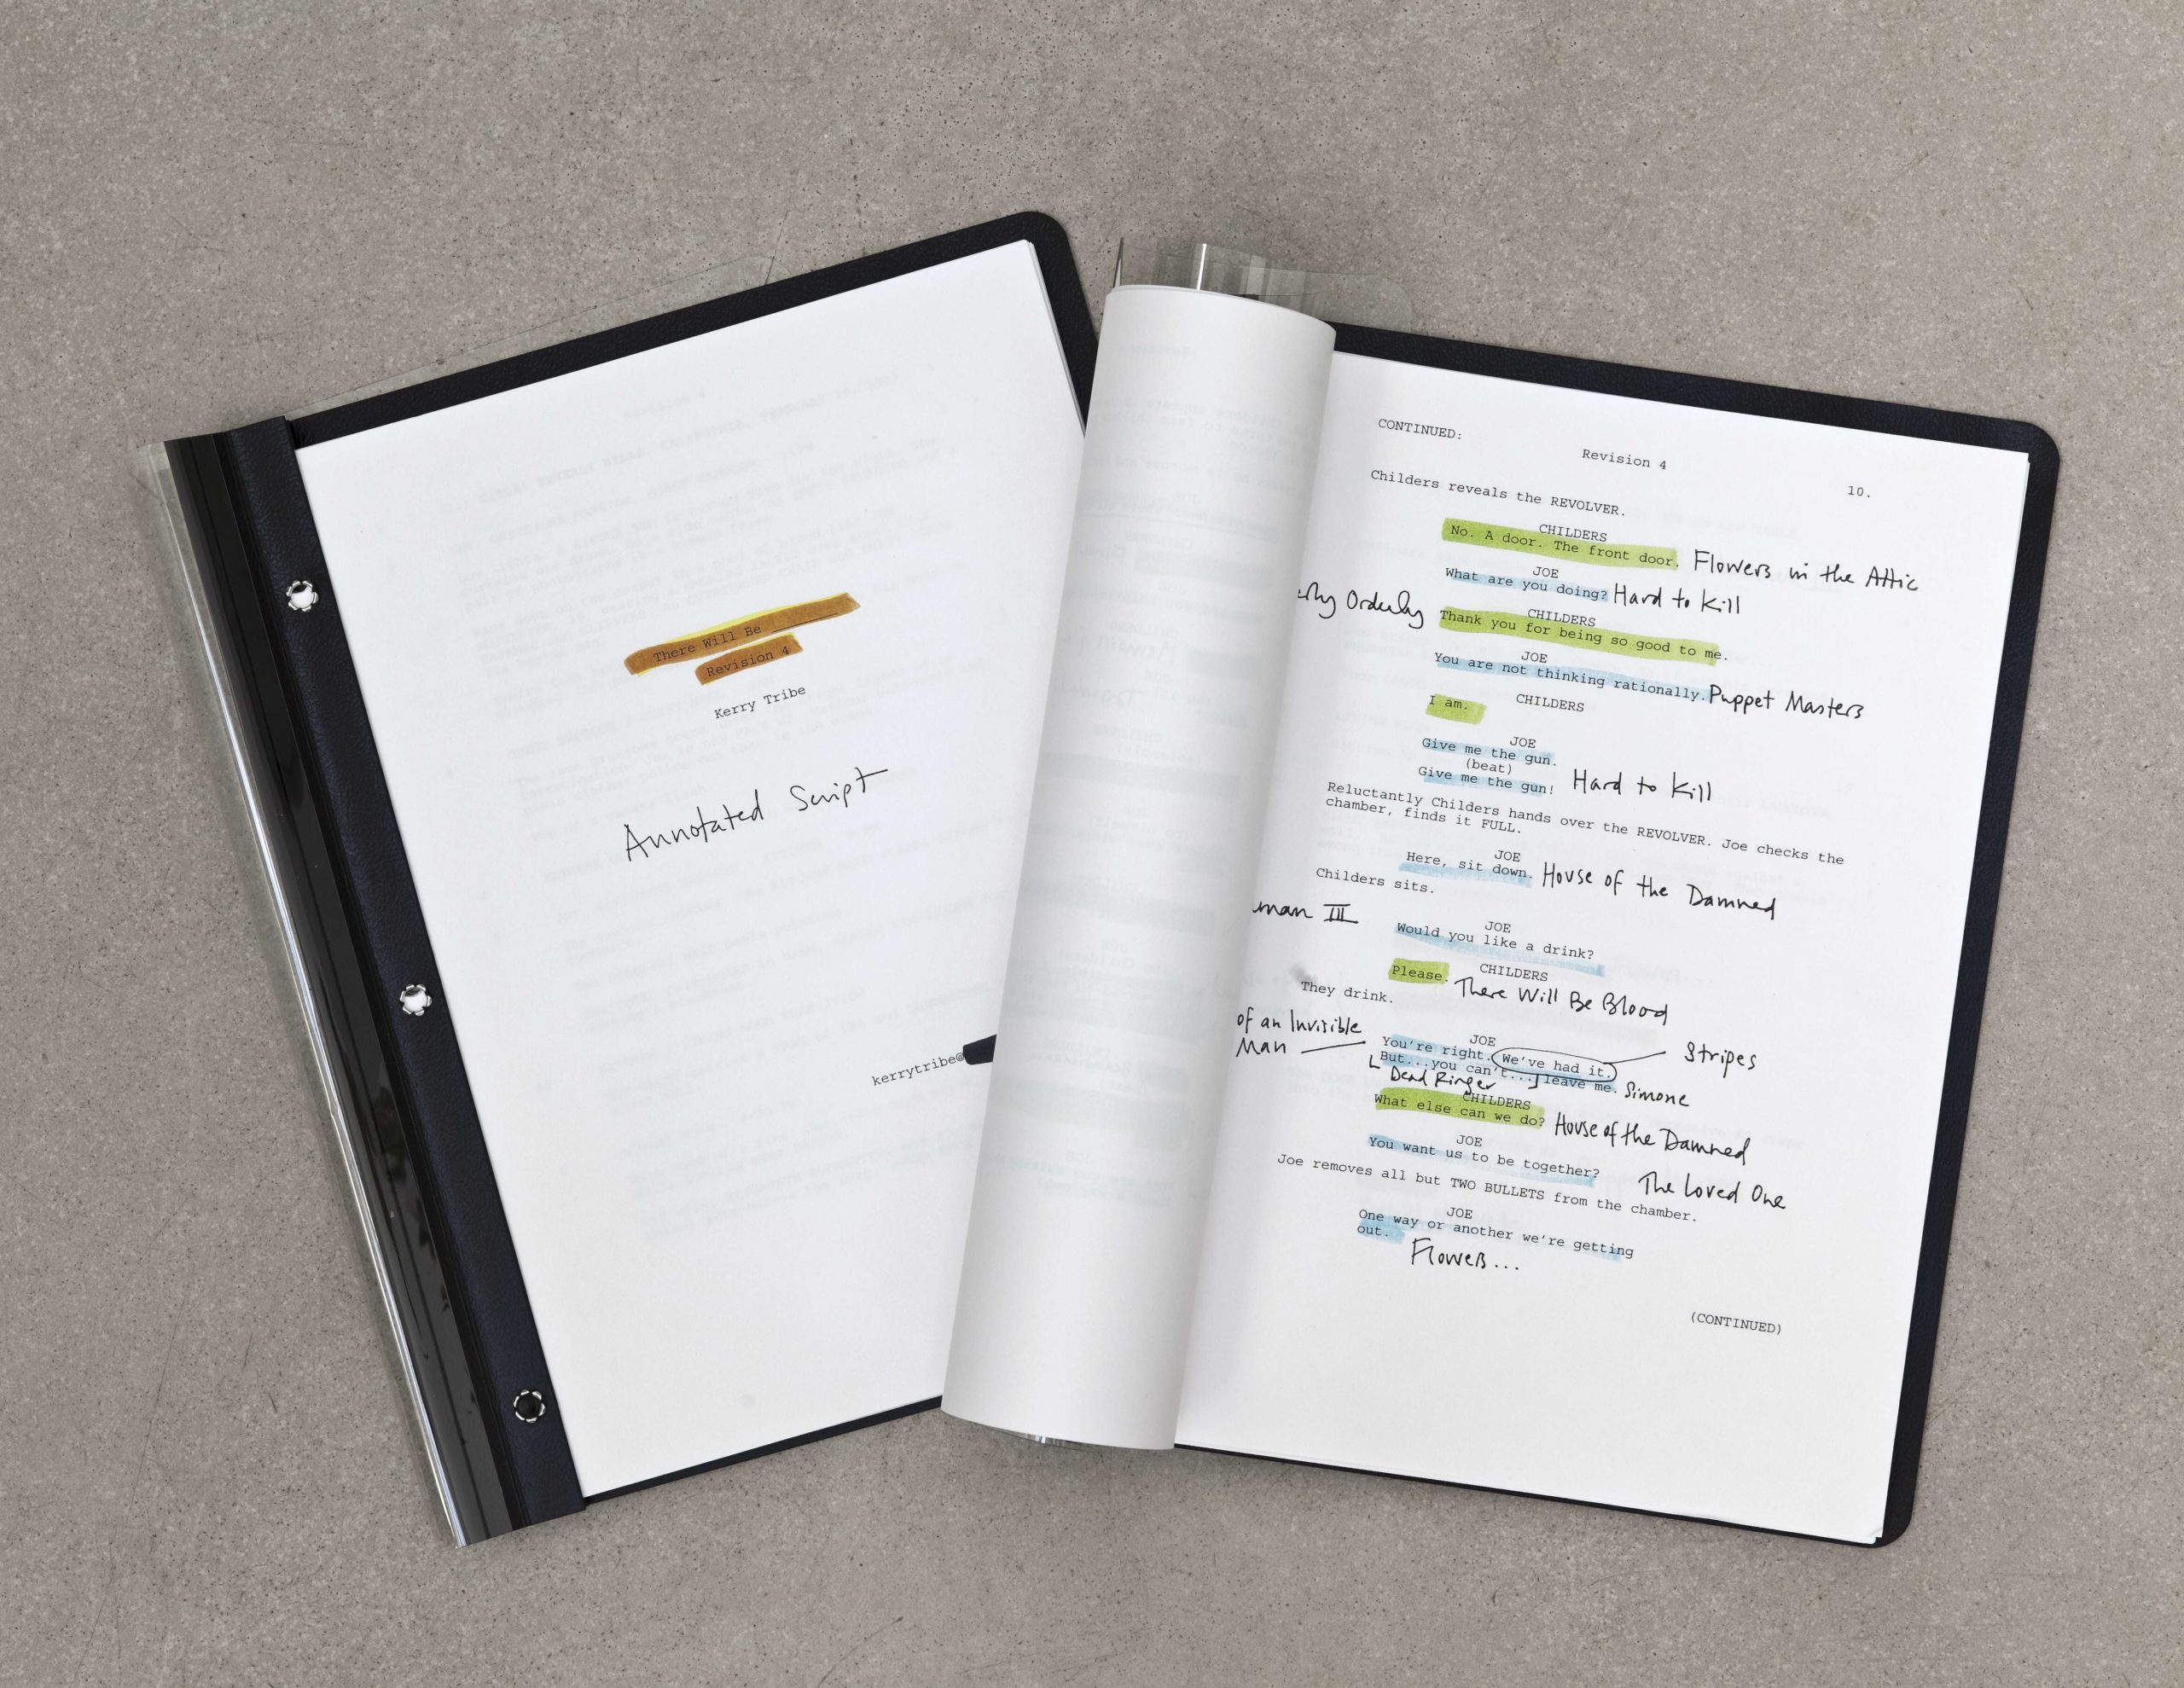 There Will Be
Revision 4
Kerry Tribe
Annotated Script
kerrytribe@
CONTINUED:
Revision 4
10.
Childers reveals the REVOLVER.
CHILDERS
No. A door. The front door. Flowers in the Attic
JOE
What are you doing? Hard to Kill
CHILDERS
Orderly Thank you for being so good to me.
JOE
You are not thinking rationally. Puppet Masters
CHILDERS
I am.
JOE
Give me the gun.
(beat)
Give me the gun! Hard to Kill
Reluctantly Childers hands over the REVOLVER. Joe checks the
chamber, finds it FULL.
JOE
Here, sit down. House of the Damned
Childers sits.
III
JOE
Would you like a drink?
CHILDERS
Please. There Will Be Blood
They drink.
of an Invisible
Man
JOE
You're right. We've had it. Stripes
But...you can't... leave me. Simone
Dead Ringer
CHILDERS
What else can we do? House of the Damned
JOE
You want us to be together? The Loved One
Joe removes all but TWO BULLETS from the chamber.
JOE
One way or another we're getting
out. Flowers...
(CONTINUED)